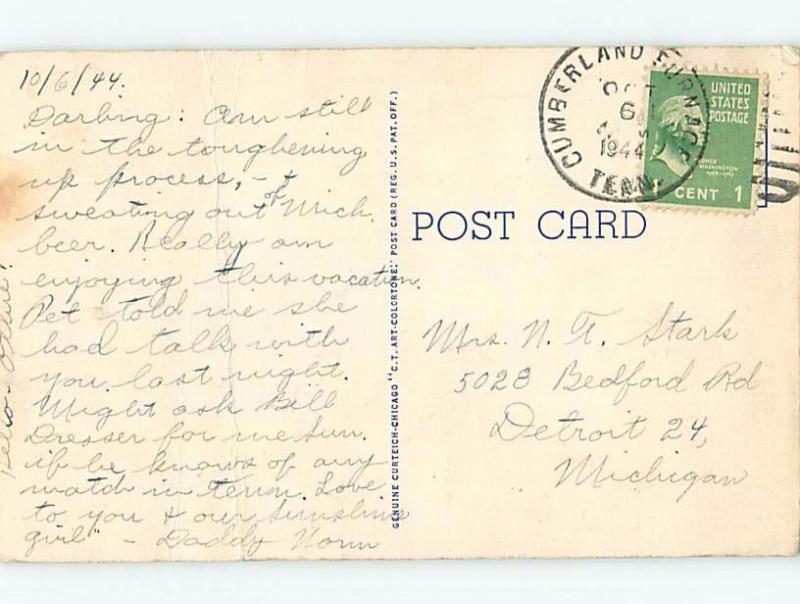 10/6/44.
Darling: Am still
in the toughening
up process, - &
sweating out of Mich.
beer. Really am
enjoying this vacation.
Pet told me she
had talk with
you last night.
Might ask Bill
Dresser for me Sun.
if he knows of any
match in Tenn. Love
to you & our Sunshine
girl" - Daddy Norm
Hello -
GENUINE CURTEICH-CHICAGO "C.T. ART-COLORTONE" POST CARD (REG. U.S. PAT. OFF.)
POST CARD
CUMBERLAND FURNACE
OCT
6
1944
TENN.
UNITED
STATES
POSTAGE
GEORGE
WASHINGTON
CENT 1
Mrs. N. A. Stark
5028 Bedford Rd
Detroit 24,
Michigan